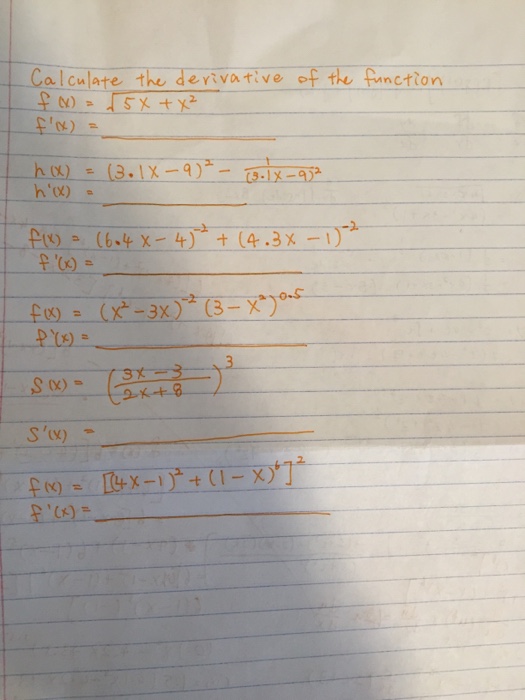 Calculate the derivative of the function
f(x) = √5x + x²
f'(x) =
h(x) = (3.1x - 9)² - 1/(3.1x - 9)²
h'(x) =
f(x) = (6.4x - 4)⁻² + (4.3x - 1)⁻²
f'(x) =
f(x) = (x² - 3x)⁻² (3 - x²)⁰·⁵
f'(x) =
S(x) = ((3x - 3)/(2x + 8))³
S'(x) =
f(x) = [(4x - 1)² + (1 - x)⁶]²
f'(x) =